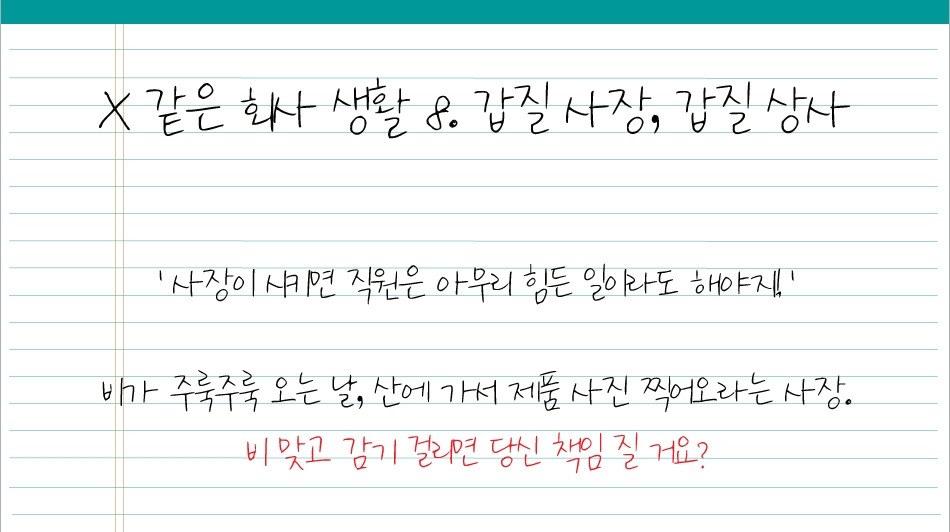 X 같은 회사 생활 8. 갑질 사장, 갑질 상사
'사장이 시키면 직원은 아무리 힘든 일이라도 해야지!'
비가 주룩주룩 오는 날, 산에 가서 제품 사진 찍어오라는 사장.
비 맞고 감기 걸리면 당신 책임 질 거요?